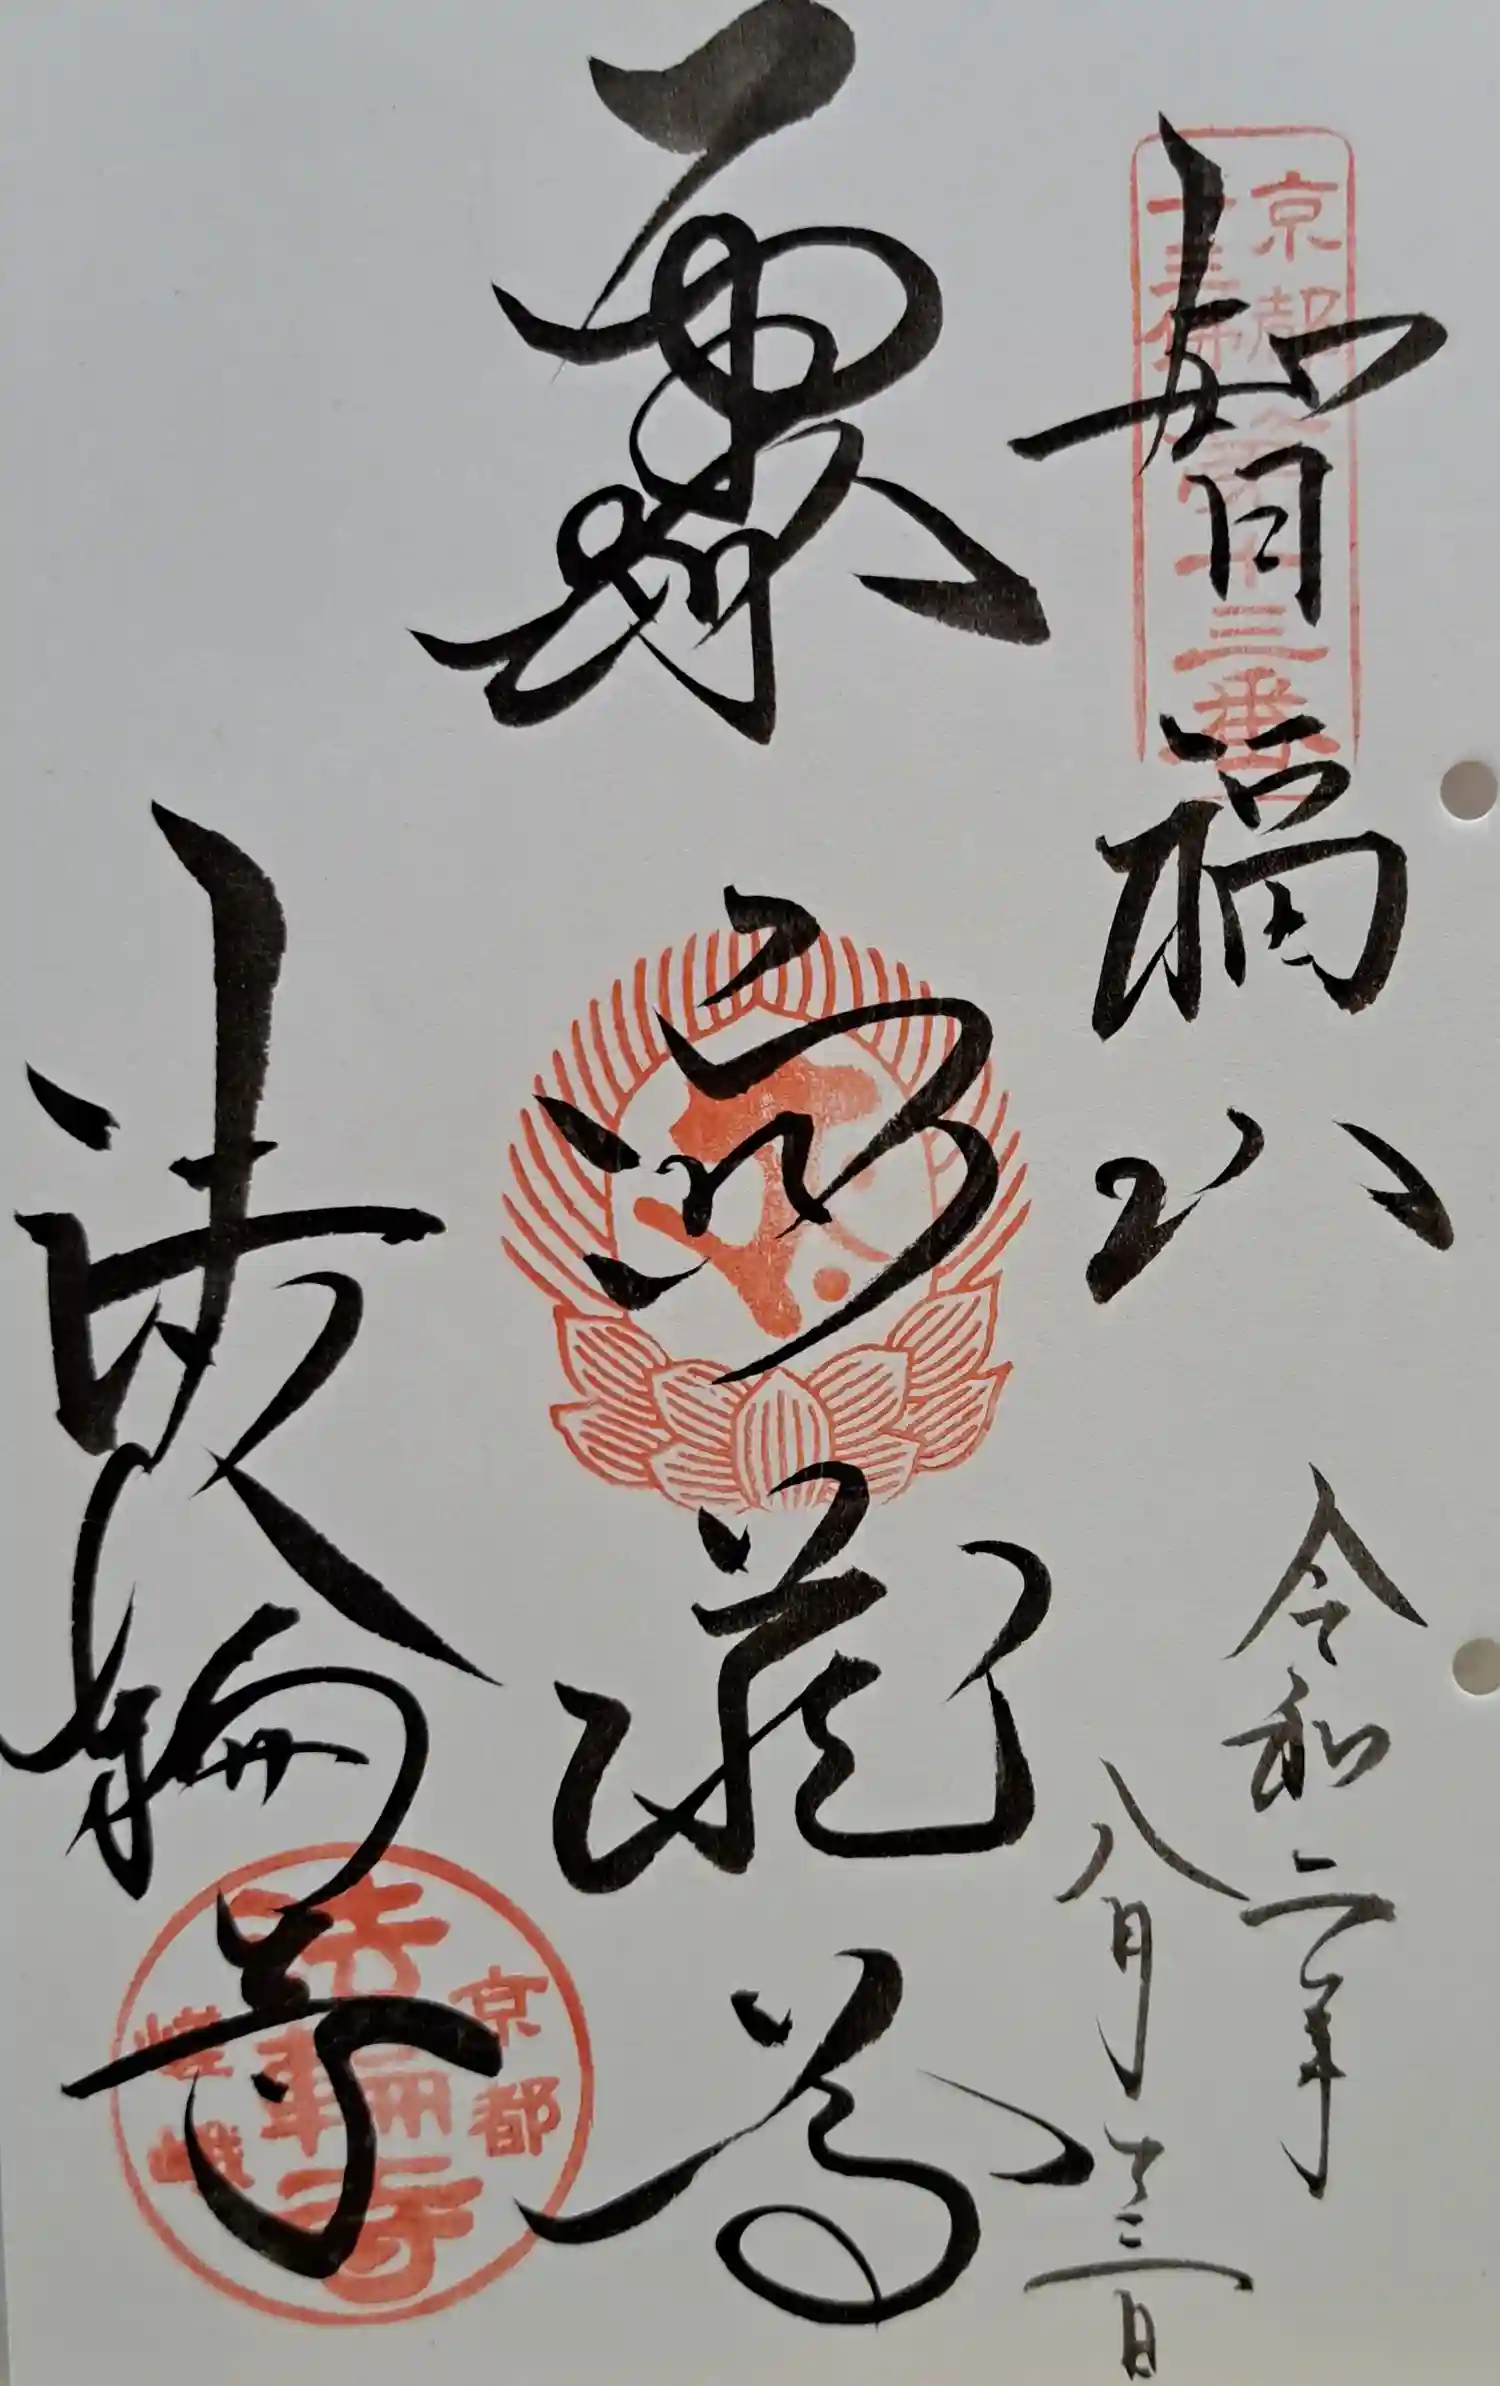 京都
十三佛
第十三番
智福山
令和二年
八月十三日
虚空蔵尊
法輪寺
京都
法輪寺
嵯峨